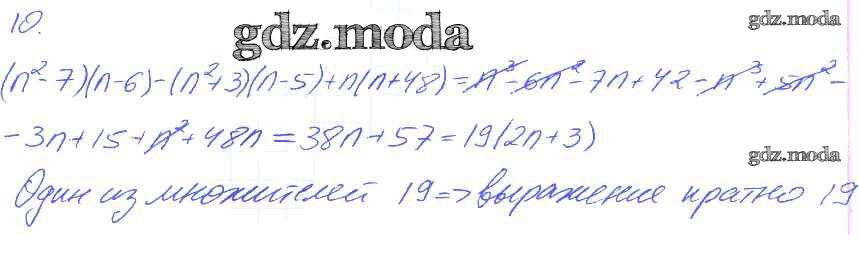 10.
gdz.moda
gdz.moda
(n²-7)(n-6)-(n²+3)(n-5)+n(n+48)=n³-6n²-7n+42-n³+5n²-
-3n+15+n²+48n=38n+57=19(2n+3)
gdz.moda
Один из множителей 19=>выражение кратно 19